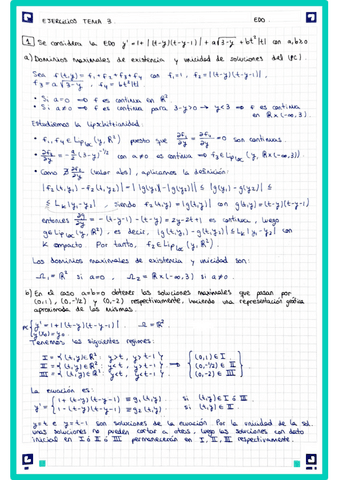 EJERCICIOS TEMA 3. EDO.
1 Se considera la EDO y' = 1 + |(t-y)(t-y-1)| + a√3-y + bt²|t| con a,b≥0
a) Dominios maximales de existencia y unicidad de soluciones del (PC).
Sea f(t,y) = f₁+f₂+f₃+f₄ con f₁=1, f₂=|(t-y)(t-y-1)|,
f₃=a√3-y, f₄=bt²|t|
• Si a=0 → f es continua en ℝ²
• Si a≠0 → f es continua para 3-y>0 → y<3 → f es continua
en ℝx(-∞,3).
Estudiemos la Lipschitzianidad:
• f₁,f₄ ∈ Lip loc (y, ℝ²) puesto que ∂f₁/∂y = ∂f₄/∂y = 0 son continuas.
• ∂f₃/∂y = -a/2 (3-y)^-1/2 con a≠0 es continua → f₃ ∈ Lip loc (y, ℝx(-∞,3))
• Como ∄ ∂f₂/∂y (valor abs), aplicamos la definición:
|f₂(t,y₁) - f₂(t,y₂)| = ||g(y₁)|-|g(y₂)|| ≤ |g(y₁)-g(y₂)| ≤
≤ L k |y₁-y₂|, siendo f₂(t,y)=|g(t,y)| con g(t,y)=(t-y)(t-y-1)
entonces ∂g/∂y = -(t-y-1)-(t-y) = 2y-2t+1 es continua, luego
g ∈ Lip loc (y, ℝ²), es decir, |g(t,y₁)-g(t,y₂)| ≤ L k |y₁-y₂| con
K compacto. Por tanto, f₂ ∈ Lip loc (y, ℝ²).
Los dominios maximales de existencia y unicidad son:
Ω₁=ℝ² si a=0, Ω₂=ℝx(-∞,3) si a≠0.
b) En el caso a=b=0 obtener las soluciones maximales que pasan por
(0,1), (0,-1/2) y (0,-2) respectivamente, haciendo una representación gráfica
aproximada de las mismas.
PC { y' = 1+|(t-y)(t-y-1)|. Ω=ℝ²
y(t₀)=y₀.
Tenemos las siguientes regiones:
I = {(t,y)∈ℝ²: y>t, y>t-1} (0,1) ∈ I
II = {(t,y)∈ℝ²: y<t, y>t-1} ⟹ (0,-1/2) ∈ II
III = {(t,y)∈ℝ²: y<t, y<t-1} (0,-2) ∈ III
La ecuación es:
y' = { 1+(t-y)(t-y-1) ≡ g₁(t,y) si (t,y) ∈ I ó III
1-(t-y)(t-y-1) ≡ g₂(t,y) si (t,y) ∈ II
y=t e y=t-1 son soluciones de la ecuación. Por la unicidad de la sol.
unas soluciones no pueden cortar a otras, luego las soluciones con dato
inicial en I ó II ó III permanecerán en I, II, III, respectivamente.